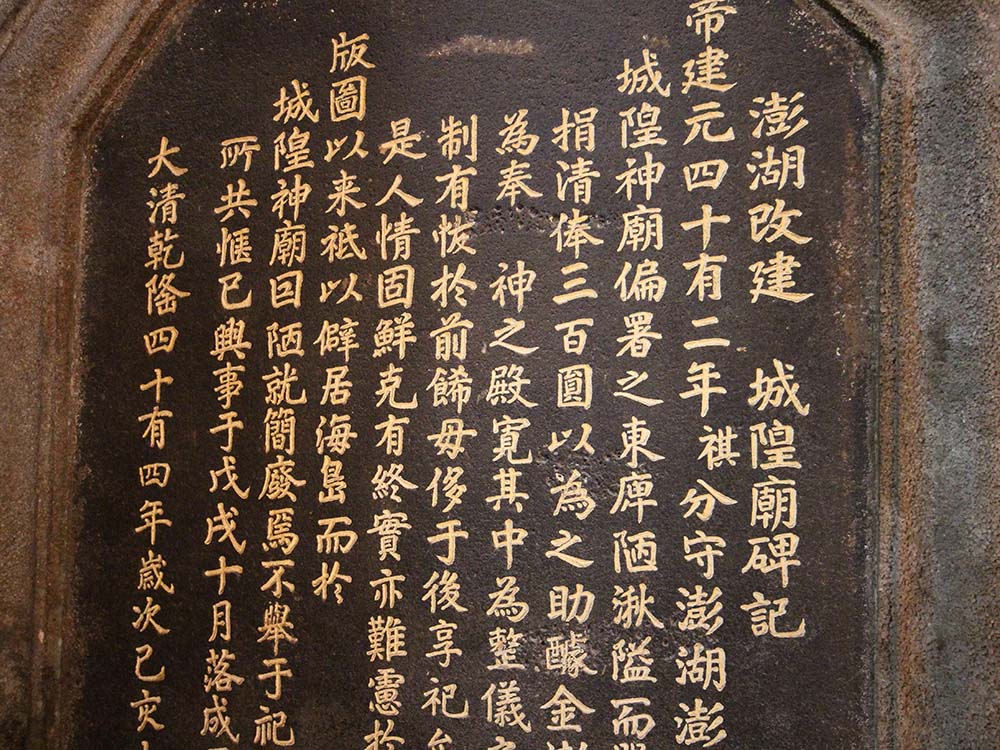 澎湖改建 城隍廟碑記
帝建元四十有二年祺分守澎湖澎
城隍神廟偏署之東庫陋湫隘而
捐清俸三百圓以為之助醵金
為奉 神之殿寬其中為整儀
制有恢於前餙毋侈于後享祀
是人情固鮮克有終實亦難憲於
版圖以来祗以僻居海島而於
城隍神廟因陋就簡廢焉不舉于祀
所共愜已興事于戊戌十月落成
大清乾隆四十有四年歲次己亥